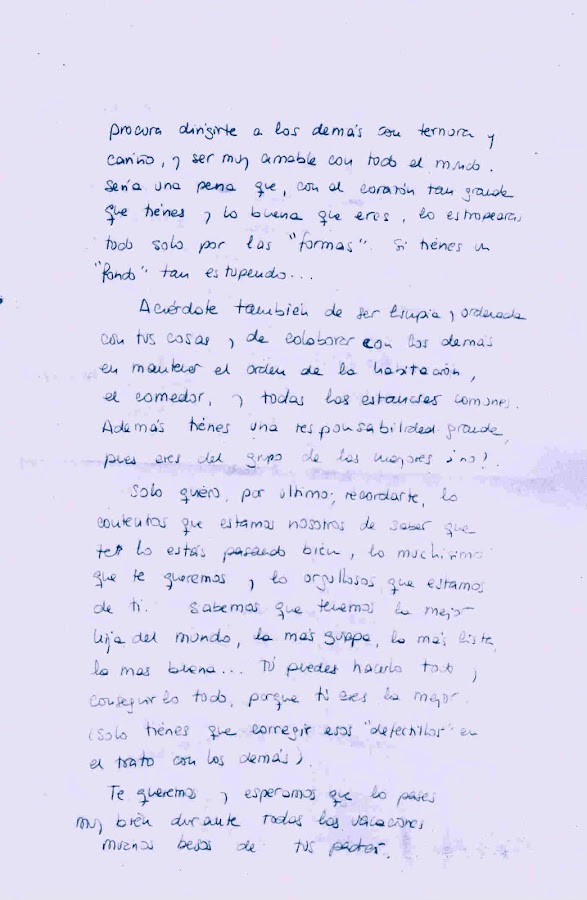 procura dirigirte a los demás con ternura y
cariño, y ser muy amable con todo el mundo.
Sería una pena que, con el corazón tan grande
que tienes y lo buena que eres, lo estropearas
todo solo por las "formas". Si tienes un
"fondo" tan estupendo...
Acuérdate también de ser limpia y ordenada
con tus cosas y de colaborar con los demás
en mantener el orden de la habitación,
el comedor, y todas las estancias comunes.
Además tienes una responsabilidad grande,
pues eres del grupo de las mejores ¿no?.
Solo quiero, por último, recordarte, lo
contentos que estamos nosotros de saber que
te lo estás pasando bien, lo muchísimo
que te queremos y lo orgullosos que estamos
de ti. Sabemos que tenemos la mejor
hija del mundo, la más guapa, la más lista,
la mas buena... Tú puedes hacerlo todo y
conseguirlo todo, porque tú eres la mejor.
(Solo tienes que corregir esos "defectillos" en
el trato con los demás).
Te queremos y esperamos que lo pases
muy bien durante todas las vacaciones
muchos besos de tus padres.